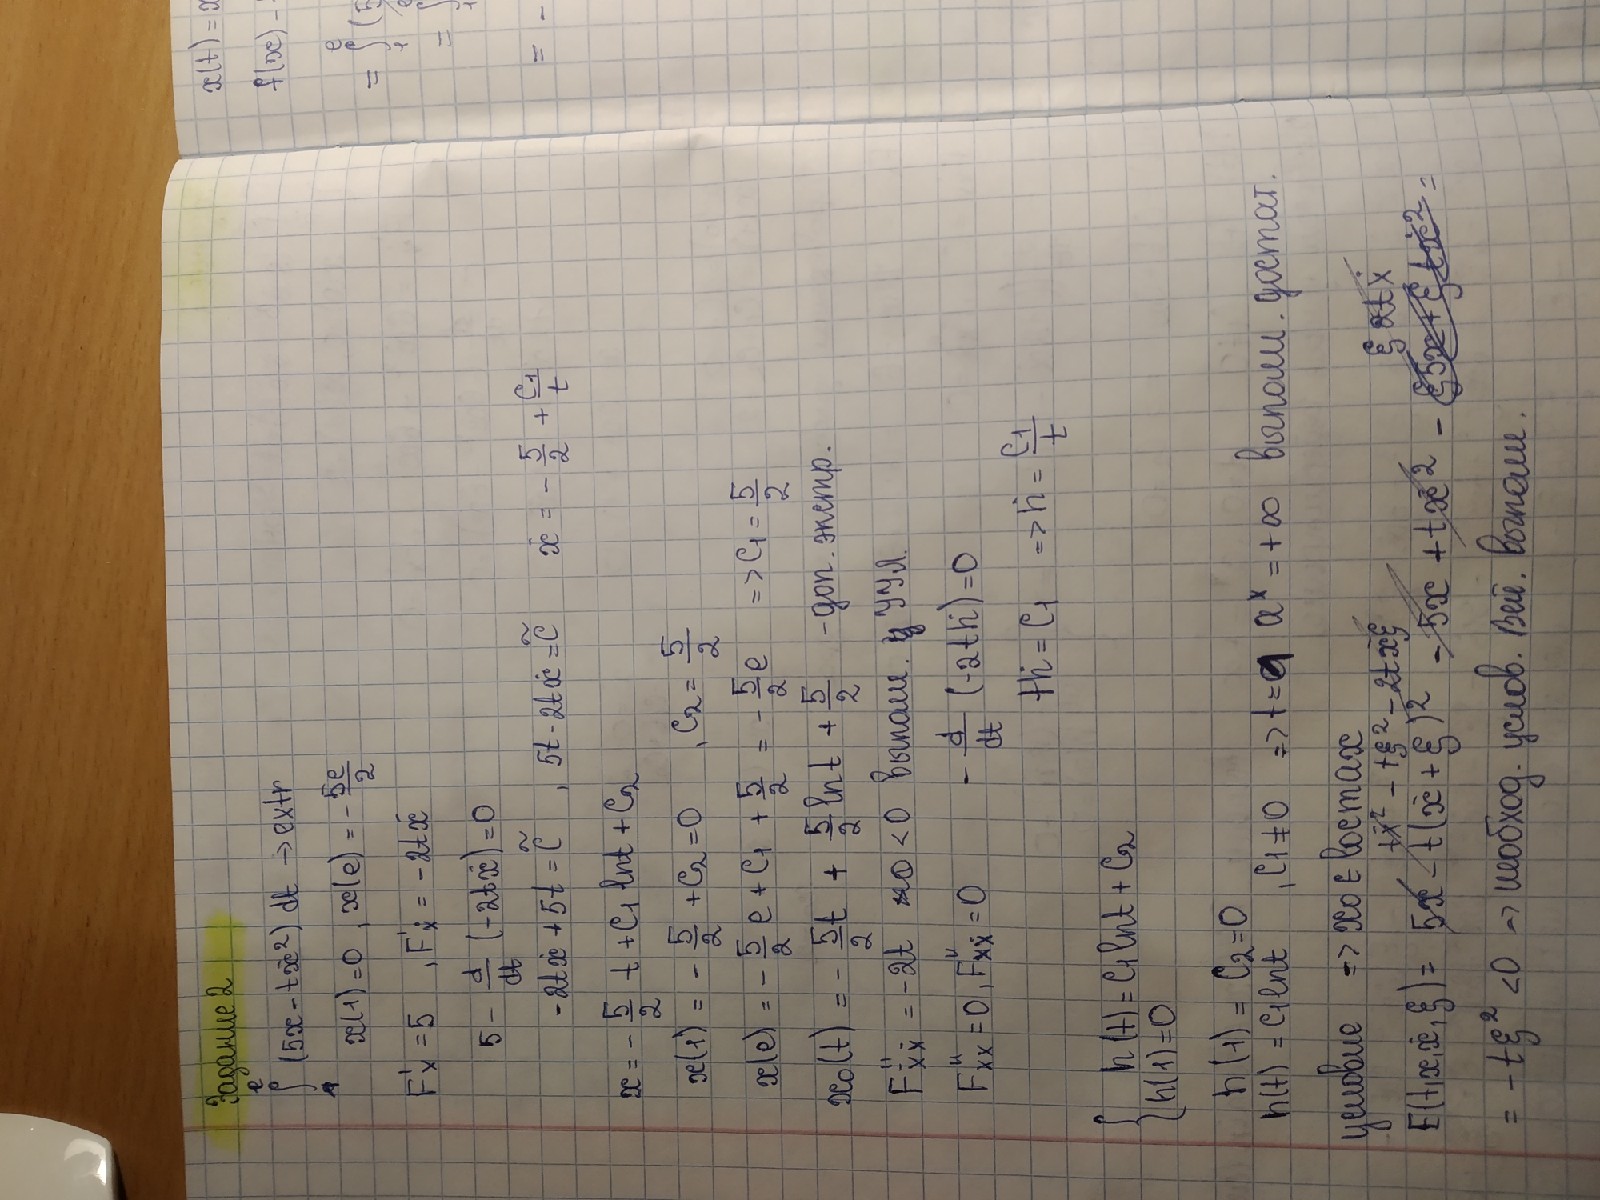 Задание 2
∫₁ᵉ (5x - tẋ²) dt → extr
x(1)=0, x(e) = -5e/2
F'ₓ = 5, F'ẋ = -2tẋ
5 - d/dt (-2tẋ) = 0
-2tẋ + 5t = C̃, 5t - 2tẋ = C̃ ẋ = -5/2 + C₁/t
x = -5/2 t + C₁ lnt + C₂
x(1) = -5/2 + C₂ = 0, C₂ = 5/2
x(e) = -5/2 e + C₁ + 5/2 = -5/2 e => C₁ = 5/2
x₀(t) = -5/2 t + 5/2 lnt + 5/2 - доп. экстр.
F''ẋẋ = -2t < 0 выполн. УУЛ.
F''ₓₓ = 0, F''ₓẋ = 0 - d/dt (-2tḣ) = 0
tḣ = C₁ => ḣ = C₁/t
{ h(t) = C₁ lnt + C₂
h(1) = 0
h(1) = C₂ = 0
h(t) = C₁ lnt, C₁ ≠ 0 => t = 1 a* = +∞ выполн. достат.
условие => x₀ ∈
tẋ² - tξ² - 2tẋξ ξ 2tẋ
E(t,x,ẋ,ξ) = 5x - t(ẋ + ξ)² - 5x + tẋ² - ξ5x + ξtẋ² =
= -tξ² < 0 => необход. услов. Вей. выполн.
x(t) = x
f(x) -
= ∫₁ᵉ (5
= ∫₁ᵉ
= -